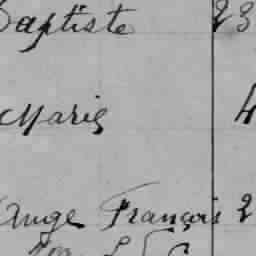 Baptiste 23
Marie 4
Ange François 2